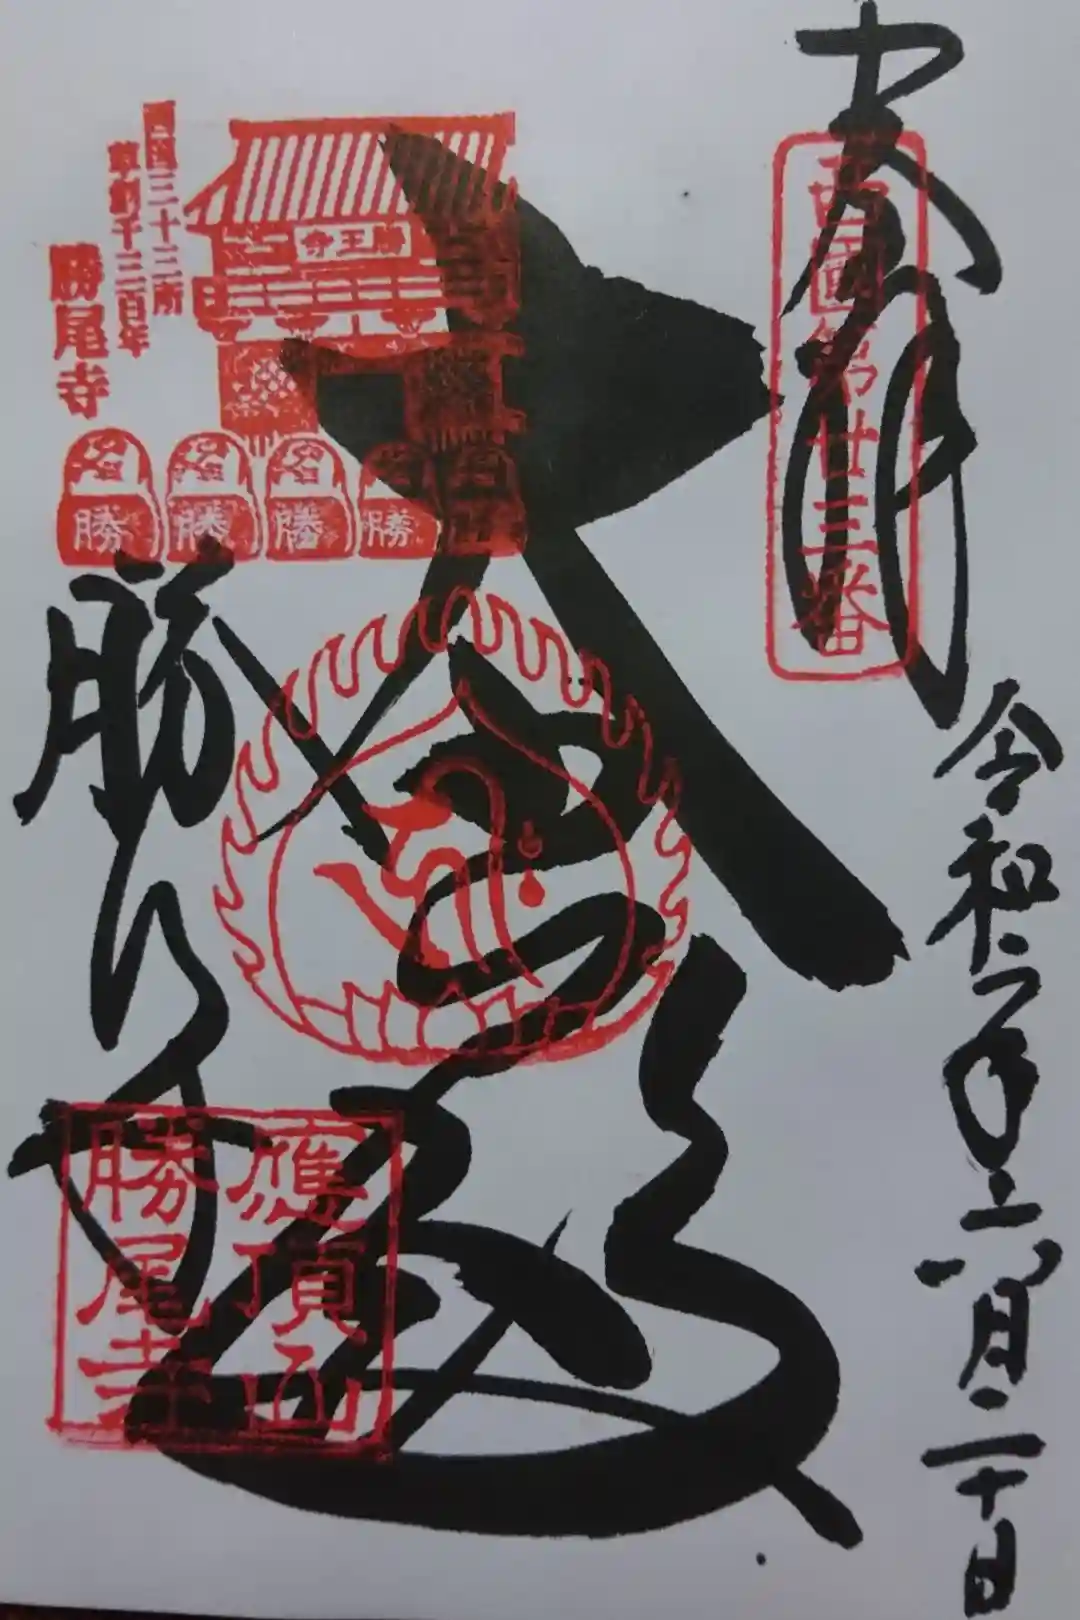 奉拝
西國第廿三番
令和二年六月二十日
大悲殿
西国三十三所
草創千三百年
勝尾寺
勝王寺
名勝
名勝
名勝
名勝
勝尾寺
應頂山
勝尾寺